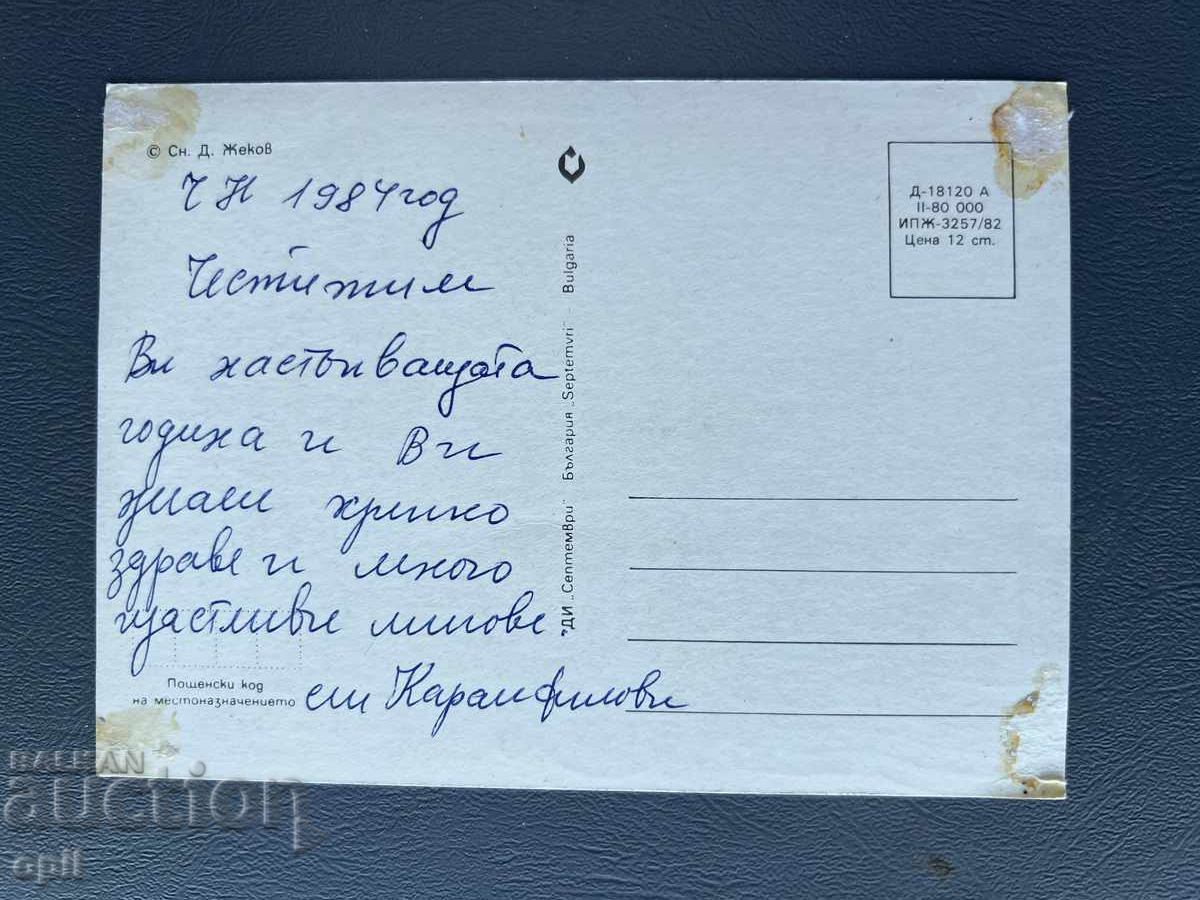 © Сн. Д. Жеков
Ч Н 1984 год
Честитим
Ви настъпващата
година и Ви
здраве и много
щастливи мигове.
сем Карамфилови
Пощенски код
на местоназначението
ДИ „Септември" България „Septemvri" - Bulgaria
Д-18120 А
II-80 000
ИПЖ-3257/82
Цена 12 ст.
BALKAN
auction
opll